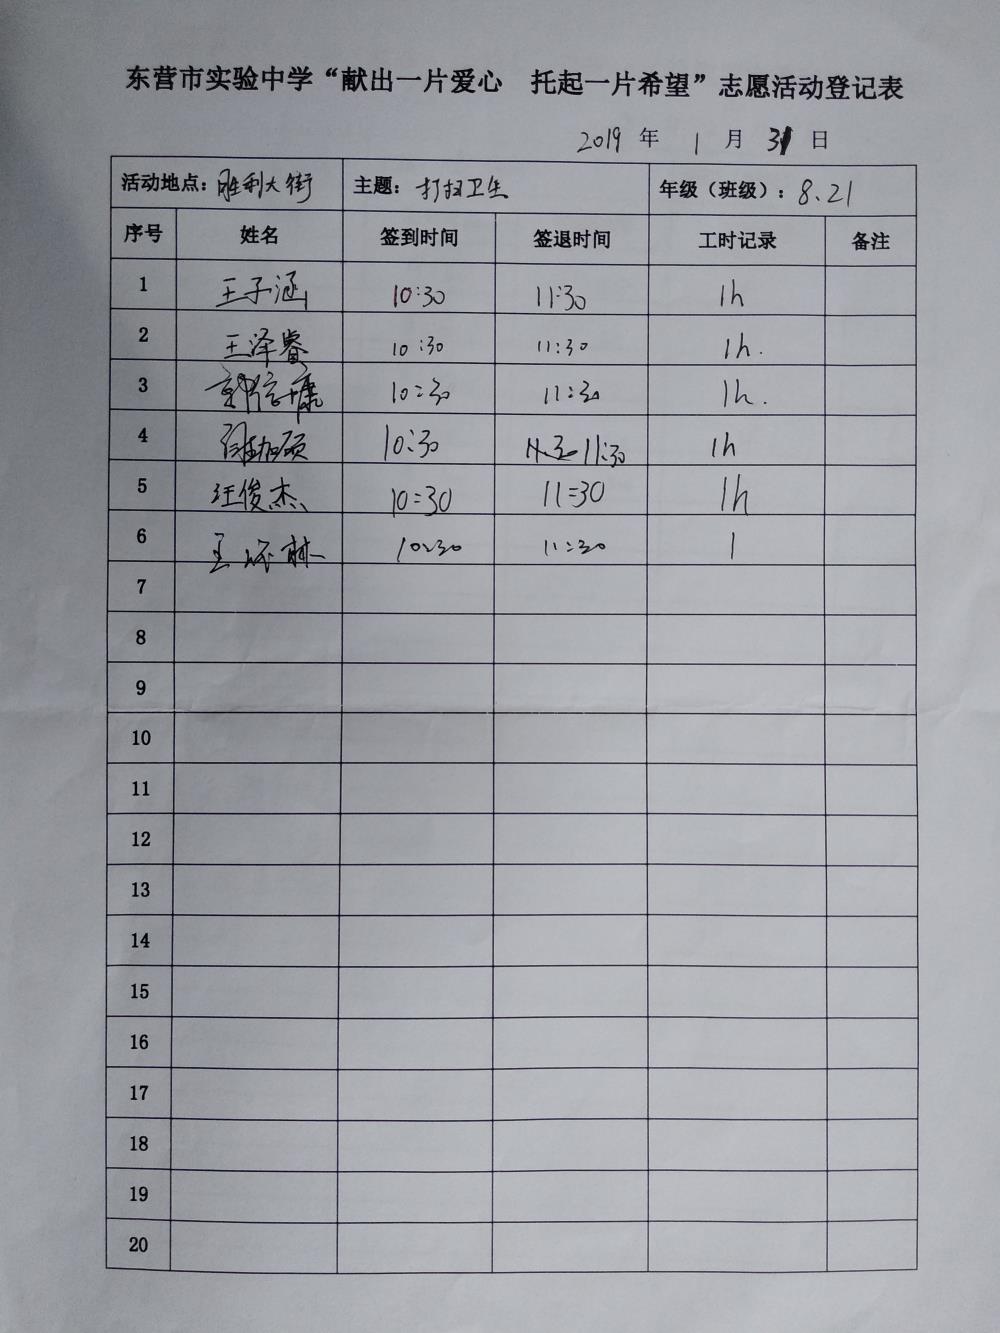 东营市实验中学“献出一片爱心 托起一片希望”志愿活动登记表
2019 年 1 月 31 日
活动地点：胜利大街 主题：打扫卫生 年级（班级）：8.21
序号 姓名 签到时间 签退时间 工时记录 备注
1 王子涵 10:30 11:30 1h
2 王泽睿 10:30 11:30 1h.
3 10:30 11:30 1h.
4 10:30 11:30 1h
5 汪俊杰 10:30 11:30 1h
6 10:30 11:30 1
7
8
9
10
11
12
13
14
15
16
17
18
19
20